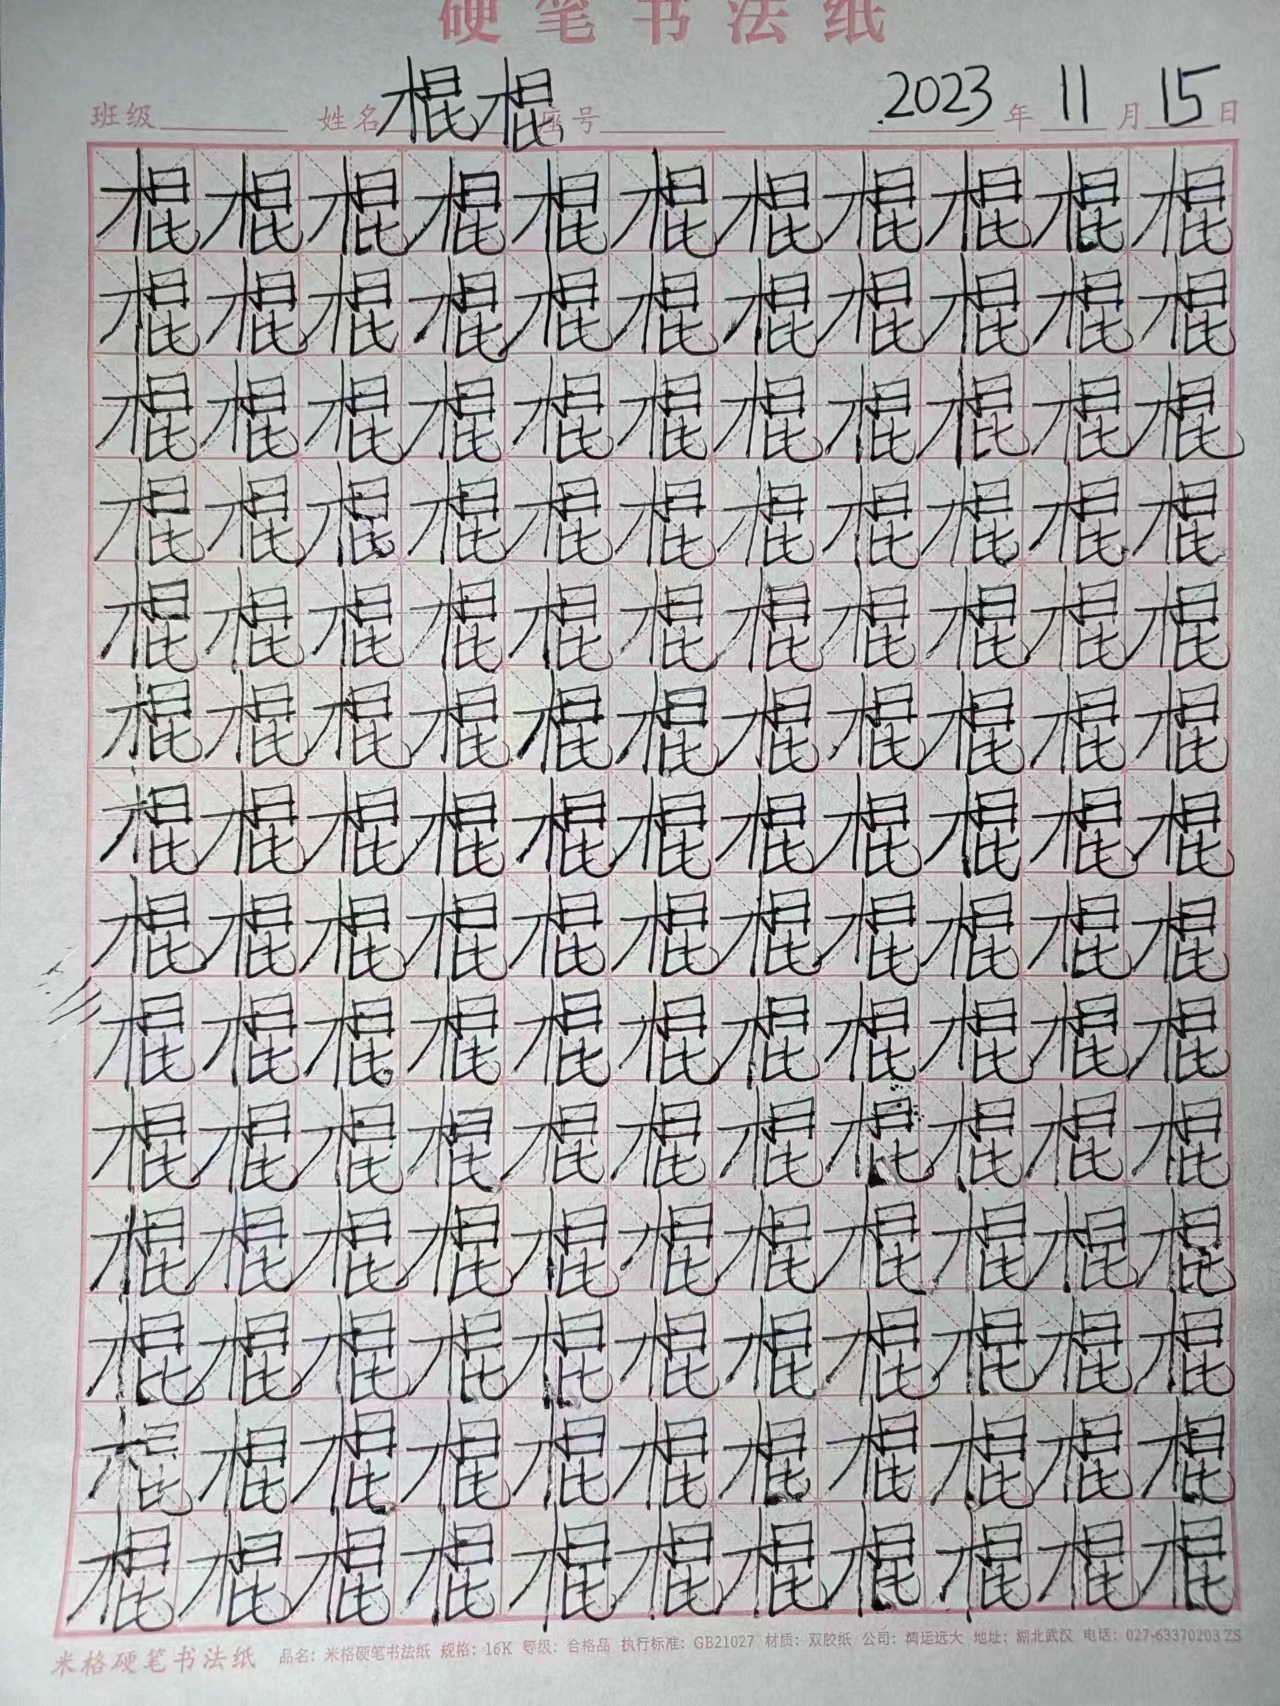 硬笔书法纸
班级 姓名 棍棍 座号 2023 年 11 月 15 日
棍棍棍棍棍棍棍棍棍棍棍
棍棍棍棍棍棍棍棍棍棍棍
棍棍棍棍棍棍棍棍棍棍棍
棍棍棍棍棍棍棍棍棍棍棍
棍棍棍棍棍棍棍棍棍棍棍
棍棍棍棍棍棍棍棍棍棍棍
棍棍棍棍棍棍棍棍棍棍棍
棍棍棍棍棍棍棍棍棍棍棍
棍棍棍棍棍棍棍棍棍棍棍
棍棍棍棍棍棍棍棍棍棍棍
棍棍棍棍棍棍棍棍棍棍棍
棍棍棍棍棍棍棍棍棍棍棍
棍棍棍棍棍棍棍棍棍棍棍
棍棍棍棍棍棍棍棍棍棍棍
米格硬笔书法纸 品名：米格硬笔书法纸 规格：16K 等级：合格品 执行标准：GB21027 材质：双胶纸 公司：鸿运远大 地址：湖北武汉 电话：027-63370203 ZS